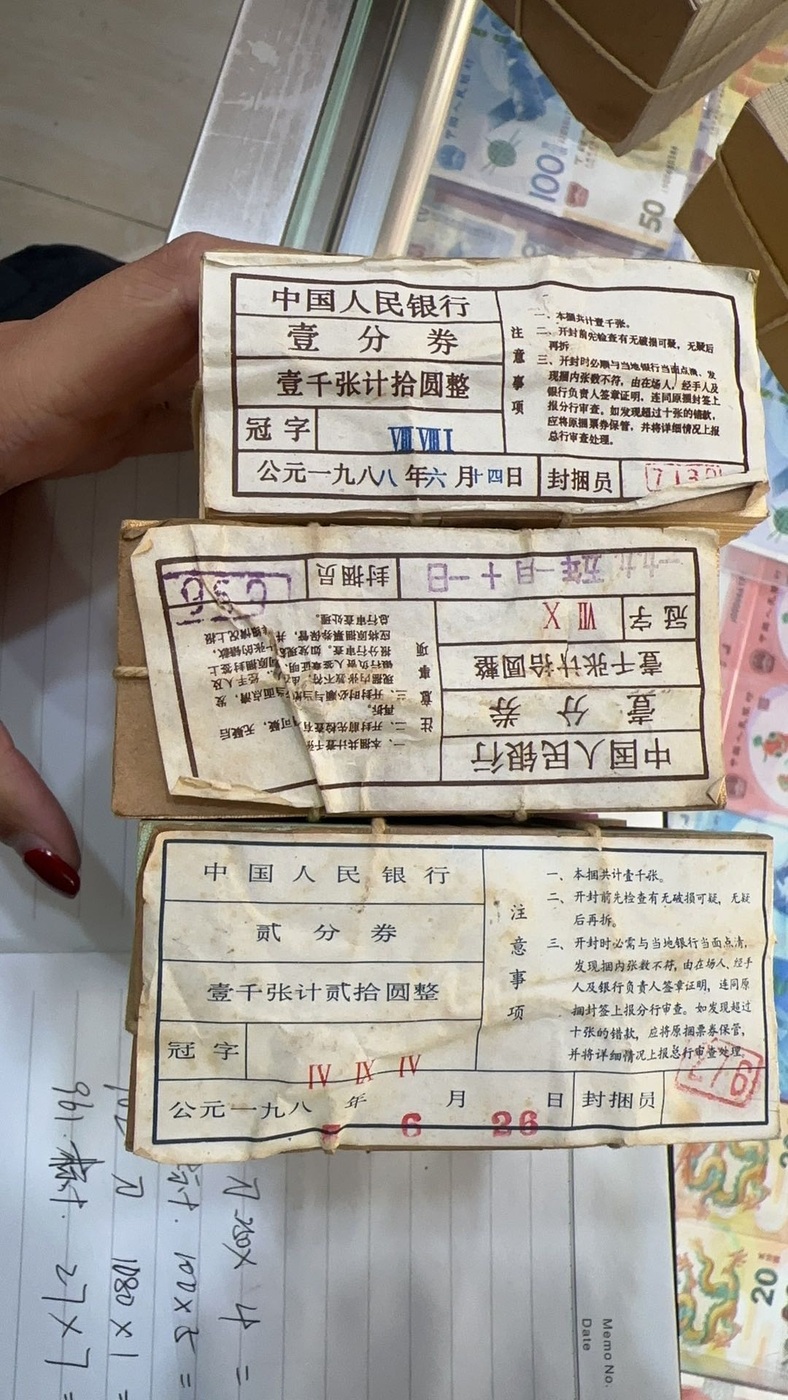 中国人民银行
壹分券
壹千张计拾圆整
冠字
Ⅷ Ⅶ Ⅰ
公元一九八八年六月十四日
封捆员
7130
注意事项
一、本捆共计壹千张。
二、开封前先检查有无破损可疑，无疑后
再拆
三、开封时必须与当地银行当面点清、发
现捆内张数不符，由在场人、经手人及
银行负责人签章证明，连同原捆封签上
报分行审查。如发现超过十张的错款，
应将原捆票券保管，并将详细情况上报
总行审查处理。
中国人民银行
壹分券
壹千张计拾圆整
冠字
Ⅶ Ⅹ
一九九五年一月十一日
封捆员
注意事项
一、本捆共计壹千张
二、开封前先检查有无破损可疑，无疑后
再拆。
三、开封时必须与当地银行当面点清，发
现捆内张数不符，由在场人、经手人及
银行负责人签章证明，连同原捆封签上
报分行审查。如发现超过十张的错款，
应将原捆票券保管，并将详细情况上报
总行审查处理。
中国人民银行
贰分券
壹千张计贰拾圆整
冠字
Ⅳ Ⅸ Ⅳ
公元一九八 年 6 月 26 日
封捆员
注意事项
一、本捆共计壹千张。
二、开封前先检查有无破损可疑，无疑
后再拆。
三、开封时必需与当地银行当面点清，
发现捆内张数不符，由在场人、经手
人及银行负责人签章证明，连同原
捆封签上报分行审查。如发现超过
十张的错款，应将原捆票券保管，
并将详细情况上报总行审查处理
100
50
20
1080×1
100×5=
27×7=
Memo No.
Date